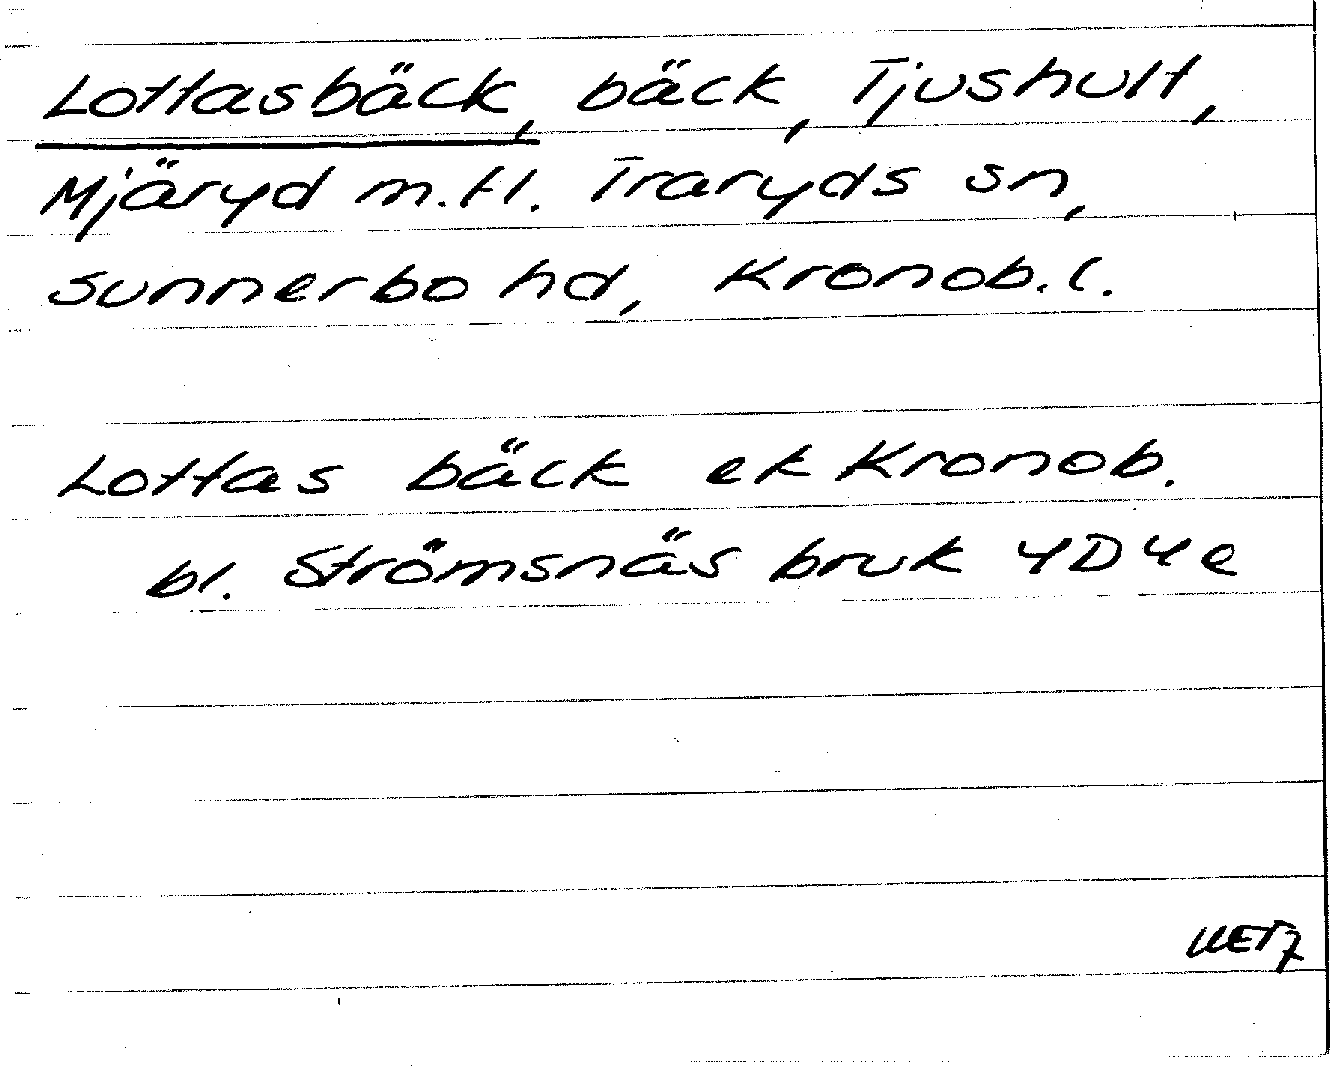 Lottasbäck, bäck, Tjushult,
Mjäryd m.fl. Traryds sn,
Sunnerbo hd, Kronob. l.
Lottas bäck ek Kronob.
bl. Strömsnäs bruk 4D4e